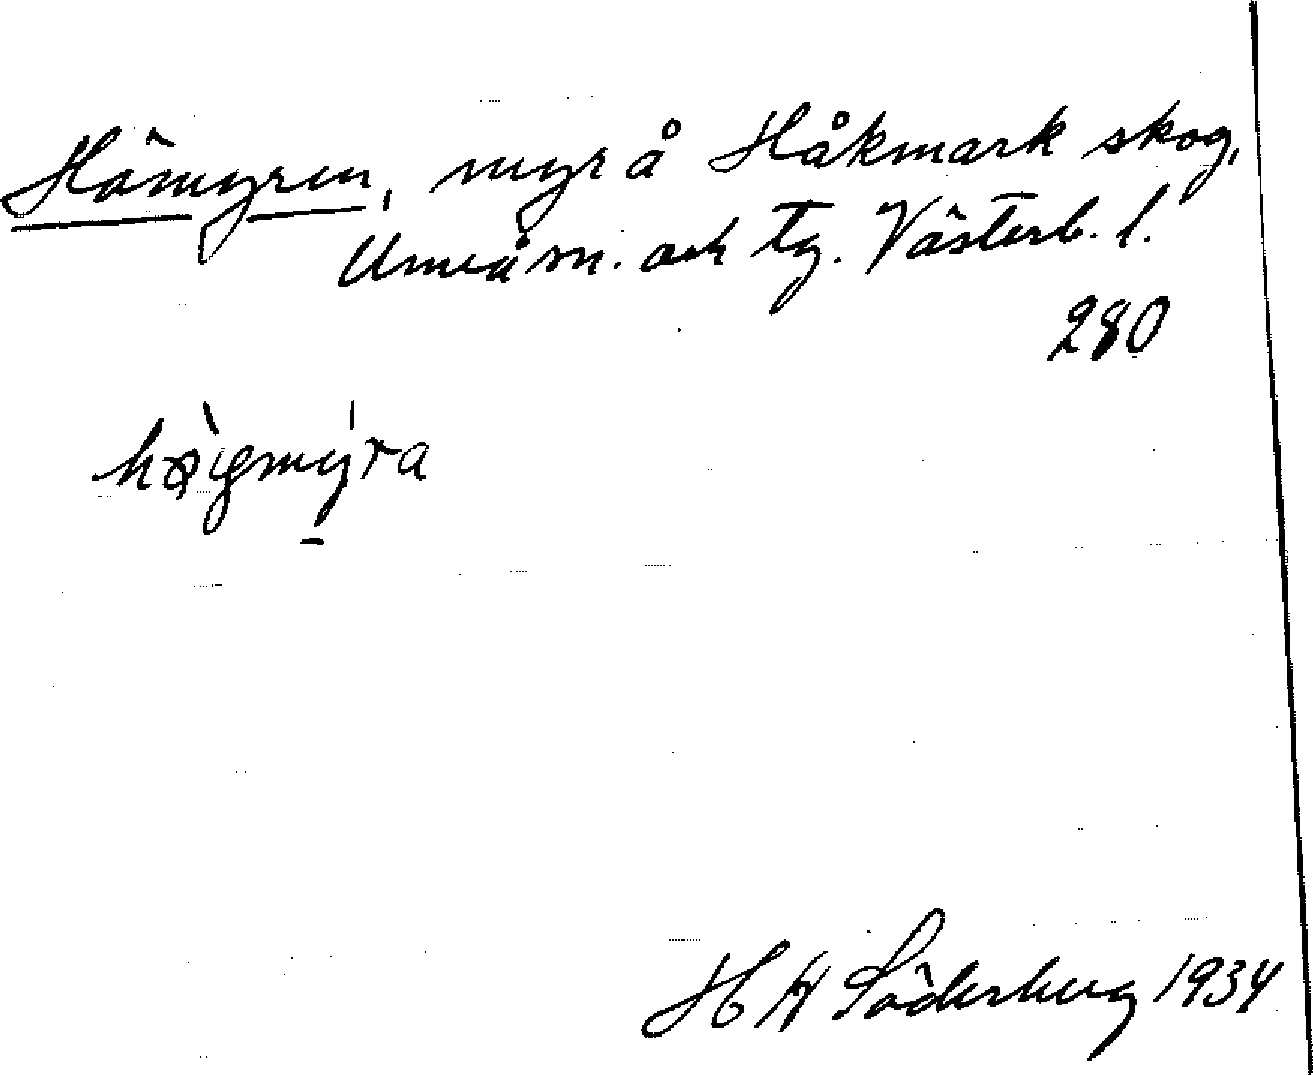 Hömyren, myr å Håkmark skog,
Umeå sn. och tg. Västerb. l.
280
Söderberg 1934